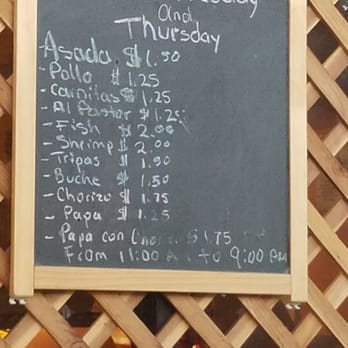 and
Thursday
Asada $1.50
- Pollo $1.25
- Carnitas $1.25
- Al Pastor $1.25
- Fish $2.00
- Shrimp $2.00
- Tripas $1.50
- Buche $1.50
- Chorizo $1.75
- Papa $1.25
- Papa con Chorizo $1.75
From 11:00 AM to 9:00 PM